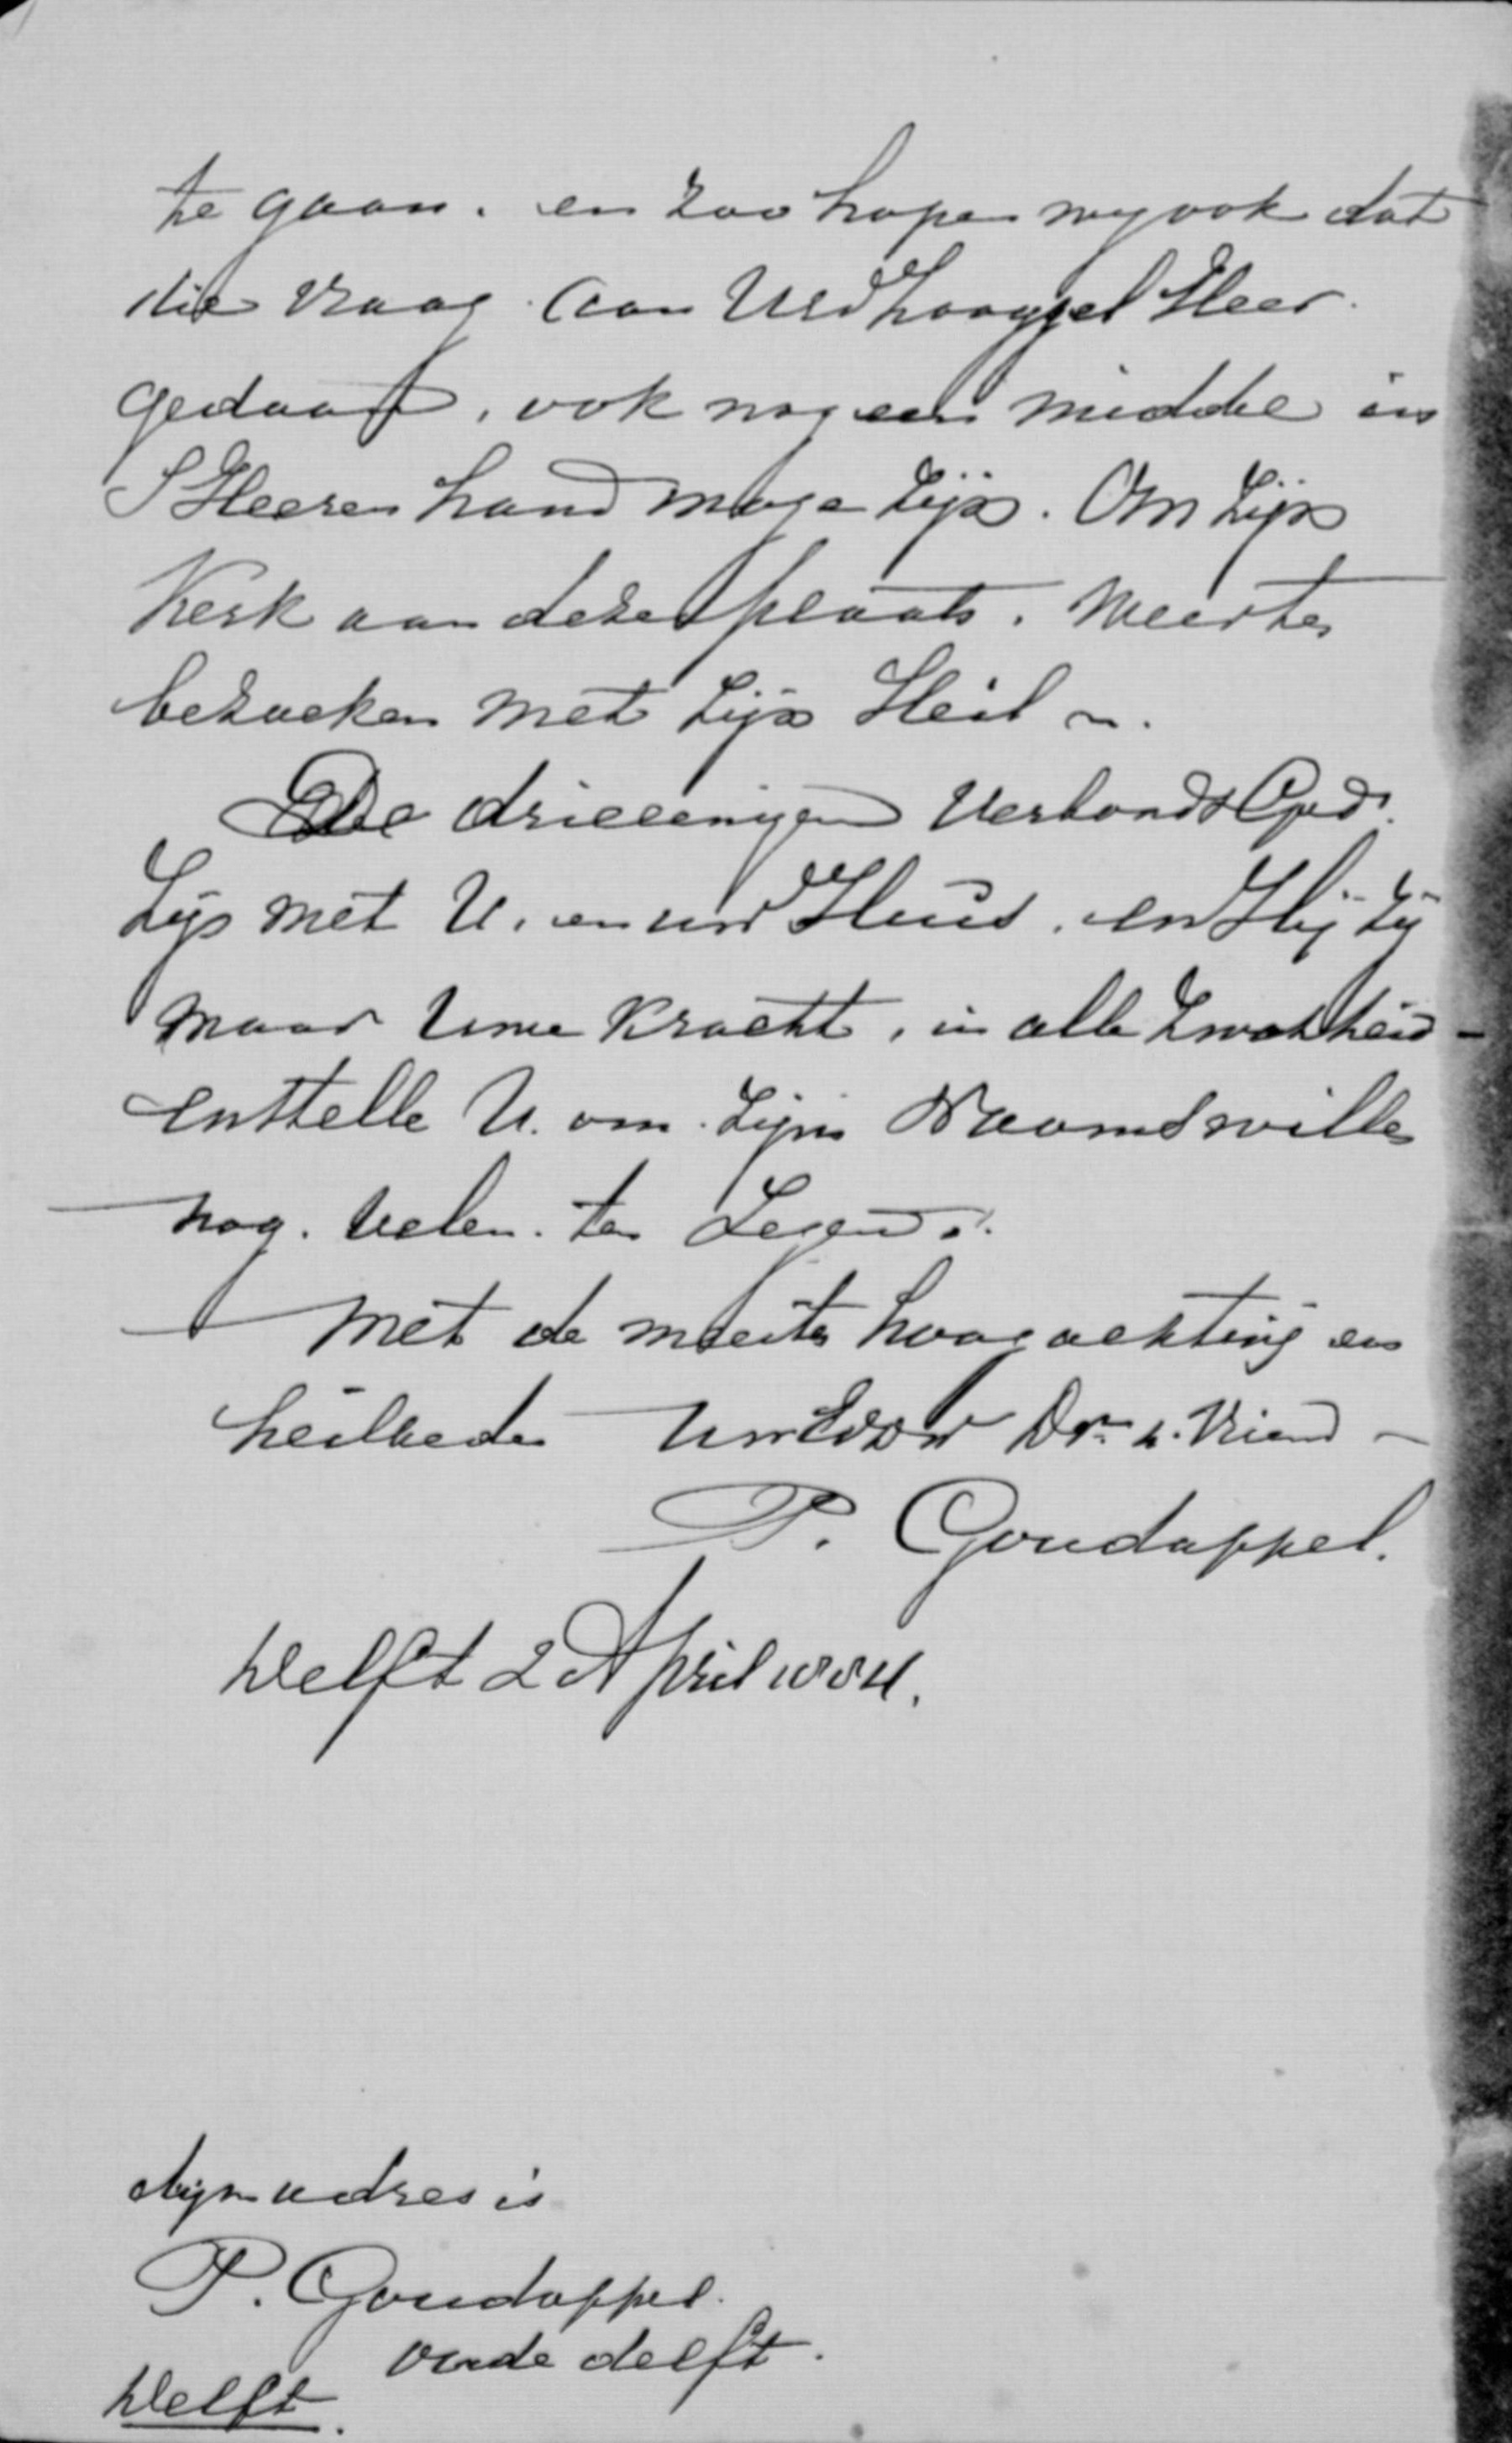 te gaan. en zoo hopen wy ook dat
die vraag. aan Uw Hooggel Heer.
gedaan, ook nog een midde in
S Heeren hand moge zijn. Om zijn
Kerk aan deze plaats. weer te
bezoeken met zijn Heil
De drieeenigen Verbonds God.
Zij met U. en uw Huis. en Hij zij
maar Uwe kracht, in alle zwakheid
en stelle U. om. zijns Naams wille
nog. velen. ten Zegen.
Met de meeste hoogachting en
heilbede Dr. u. Vriend
P. Goudappel.
Delft 2 April 1884.
Mijn adres is
P. Goudappel.
oude delft.
Delft.